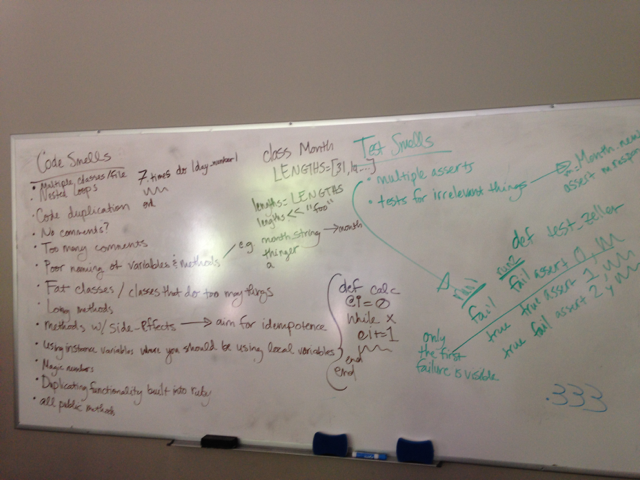 Code Smells
• Multiple classes/file
• Nested Loops
• Code duplication
• No comments?
• Too many comments
• Poor naming of variables & methods
• Fat classes / classes that do too many things
• Long methods
• methods w/ side-effects → aim for idempotence
• Using instance variables where you should be using local variables
• Magic numbers
• Duplicating functionality built into ruby
• all public methods
7 times do |day_number|
end
class Month
LENGTHS = [31,
lengths = LENGTHS
lengths << "foo"
e.g.
month string → month
thinger
a
def calc
@i = 0
while x
@i += 1
end
end
Test Smells
• multiple asserts
• tests for irrelevant things →
Month.new
assert
def test_zeller
run1
run2
fail fail assert 0,
true true assert 1,
true fail assert 2
only
the first
failure is visible
.333